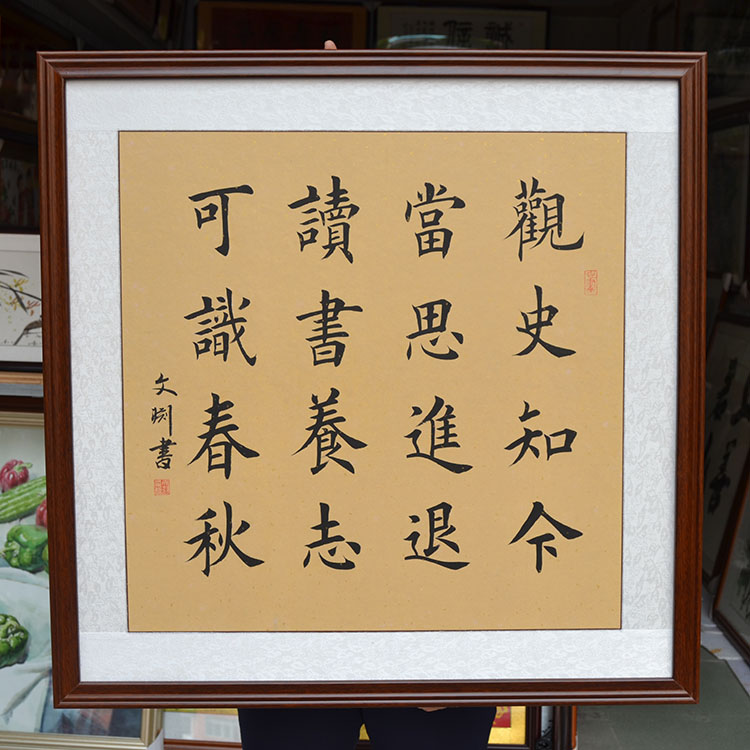 觀史知今
當思進退
讀書養志
可識春秋
文渕書